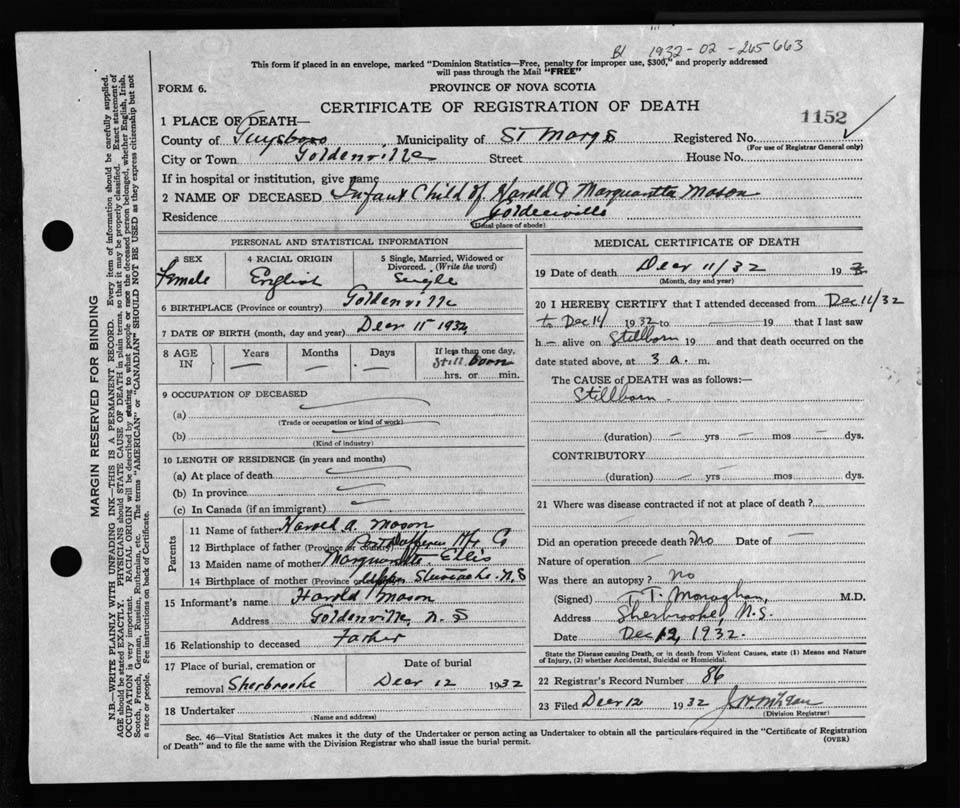 Bl 1932-02-265663
This form if placed in an envelope, marked "Dominion Statistics—Free, penalty for improper use, $300," and properly addressed
will pass through the Mail "FREE"
FORM 6.
PROVINCE OF NOVA SCOTIA
CERTIFICATE OF REGISTRATION OF DEATH
1152
1 PLACE OF DEATH—
County of Guysboro Municipality of St Marys Registered No.
(For use of Registrar General only)
City or Town Goldenville Street House No.
If in hospital or institution, give name
2 NAME OF DECEASED Infant Child of Harold & Marguaretta Mason
Residence Goldenville
(Usual place of abode)
PERSONAL AND STATISTICAL INFORMATION
3 SEX 4 RACIAL ORIGIN 5 Single, Married, Widowed or Divorced. (Write the word)
Female English Single
6 BIRTHPLACE (Province or country) Goldenville
7 DATE OF BIRTH (month, day and year) Decr 11 1932
8 AGE IN Years Months Days If less than one day, hrs. or min.
Still born
9 OCCUPATION OF DECEASED
(a)
(Trade or occupation or kind of work)
(b)
(Kind of industry)
10 LENGTH OF RESIDENCE (in years and months)
(a) At place of death
(b) In province
(c) In Canada (if an immigrant)
Parents
11 Name of father Harold A. Mason
12 Birthplace of father (Province or country)
13 Maiden name of mother Ellis
14 Birthplace of mother (Province or country) N.S
15 Informant's name Harold Mason
Address Goldenville, N. S
16 Relationship to deceased Father
17 Place of burial, cremation or removal Sherbrooke Date of burial Decr 12 1932
18 Undertaker
(Name and address)
MEDICAL CERTIFICATE OF DEATH
19 Date of death Decr 11/32 193
(Month, day and year)
20 I HEREBY CERTIFY that I attended deceased from Dec 11/32
to Dec 11/ 1932 to — 19 that I last saw
h — alive on Stillborn 19 and that death occurred on the
date stated above, at 3 a. m.
The CAUSE of DEATH was as follows:—
Stillborn.
(duration) — yrs — mos — dys.
CONTRIBUTORY
(duration) — yrs — mos — dys.
21 Where was disease contracted if not at place of death?
Did an operation precede death? No Date of —
Nature of operation —
Was there an autopsy? No
(Signed) T.T. Monaghan, M.D.
Address Sherbrooke, N.S.
Date Dec 12, 1932.
State the Disease causing Death, or in death from Violent Causes, state (1) Means and Nature
of Injury, (2) whether Accidental, Suicidal or Homicidal.
22 Registrar's Record Number 86
23 Filed Decr 12 1932
(Division Registrar)
Sec. 46—Vital Statistics Act makes it the duty of the Undertaker or person acting as Undertaker to obtain all the particulars required in the "Certificate of Registration
of Death" and to file the same with the Division Registrar who shall issue the burial permit.
(OVER)
MARGIN RESERVED FOR BINDING
N.B.—WRITE PLAINLY WITH UNFADING INK—THIS IS A PERMANENT RECORD. Every item of information should be carefully supplied.
AGE should be stated EXACTLY. PHYSICIANS should STATE CAUSE OF DEATH in plain terms, so that it may be properly classified. Exact statement of
OCCUPATION is very important. RACIAL ORIGIN will be described by stating to what people or race the deceased person belonged, whether English, Irish,
Scotch, French, German, Russian, Ruthenian, etc. The terms "AMERICAN" or "CANADIAN" SHOULD NOT BE USED as they express citizenship but not
a race or people. Fee instructions on back of Certificate.